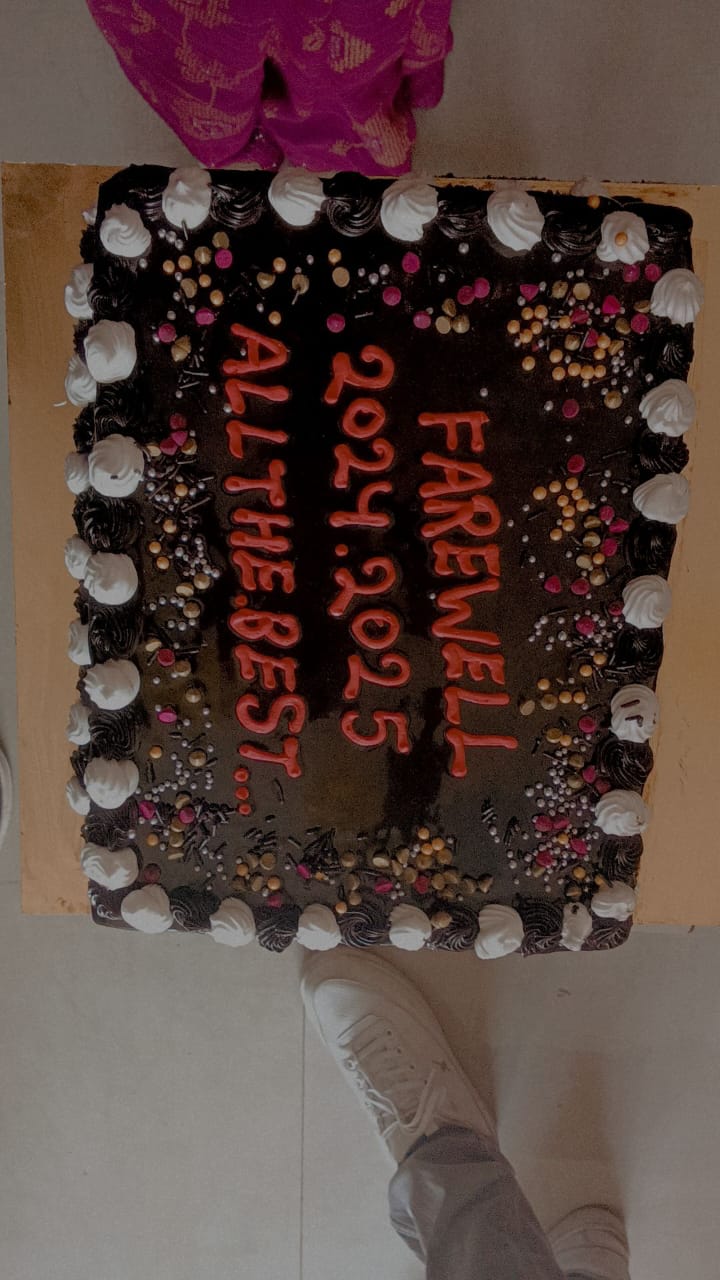 FAREWELL
2024.2025
ALL THE.BEST...